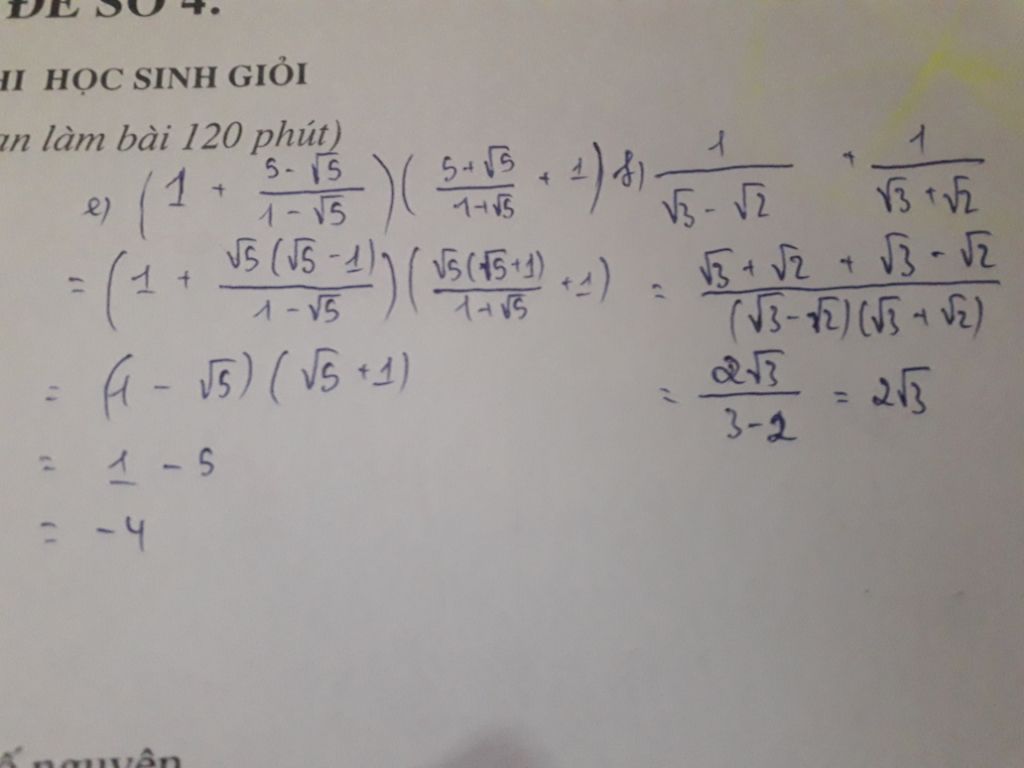 ĐỀ SỐ 4.
HI HỌC SINH GIỎI
an làm bài 120 phút)
e) (1 + \frac{5 - √5}{1 - √5})(\frac{5 + √5}{1 + √5} + 1)
= (1 + \frac{√5(√5 - 1)}{1 - √5})(\frac{√5(√5 + 1)}{1 + √5} + 1)
= (1 - √5)(√5 + 1)
= 1 - 5
= -4
f) \frac{1}{√3 - √2} + \frac{1}{√3 + √2}
= \frac{√3 + √2 + √3 - √2}{(√3 - √2)(√3 + √2)}
= \frac{2√3}{3 - 2} = 2√3
ố nguyên